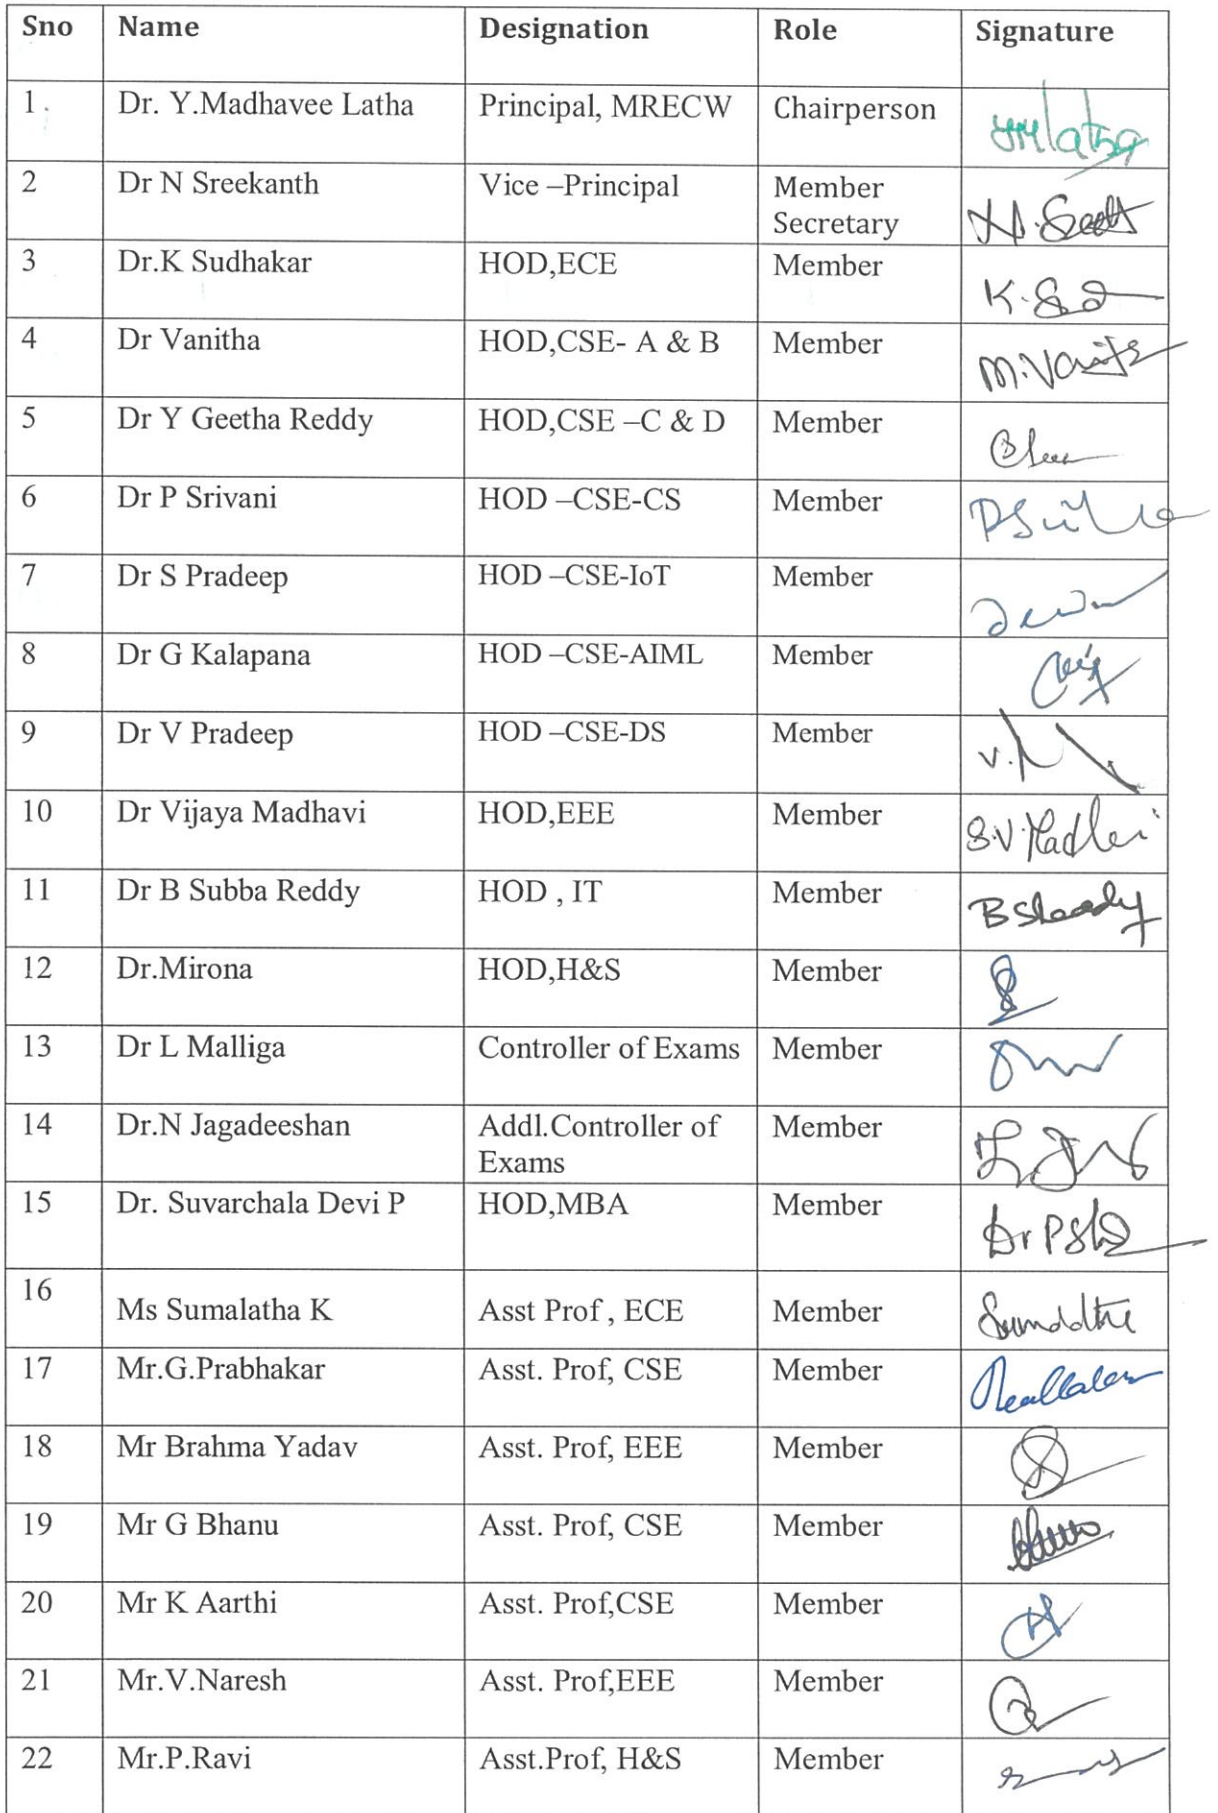 Sno Name Designation Role Signature
1. Dr. Y.Madhavee Latha Principal, MRECW Chairperson
2 Dr N Sreekanth Vice –Principal Member
Secretary
3 Dr.K Sudhakar HOD,ECE Member
4 Dr Vanitha HOD,CSE- A & B Member M.Vanitha
5 Dr Y Geetha Reddy HOD,CSE –C & D Member
6 Dr P Srivani HOD –CSE-CS Member
7 Dr S Pradeep HOD –CSE-IoT Member
8 Dr G Kalapana HOD –CSE-AIML Member
9 Dr V Pradeep HOD –CSE-DS Member
10 Dr Vijaya Madhavi HOD,EEE Member
11 Dr B Subba Reddy HOD , IT Member
12 Dr.Mirona HOD,H&S Member
13 Dr L Malliga Controller of Exams Member
14 Dr.N Jagadeeshan Addl.Controller of Member
Exams
15 Dr. Suvarchala Devi P HOD,MBA Member
16
Ms Sumalatha K Asst Prof , ECE Member
17 Mr.G.Prabhakar Asst. Prof, CSE Member
18 Mr Brahma Yadav Asst. Prof, EEE Member
19 Mr G Bhanu Asst. Prof, CSE Member
20 Mr K Aarthi Asst. Prof,CSE Member
21 Mr.V.Naresh Asst. Prof,EEE Member
22 Mr.P.Ravi Asst.Prof, H&S Member